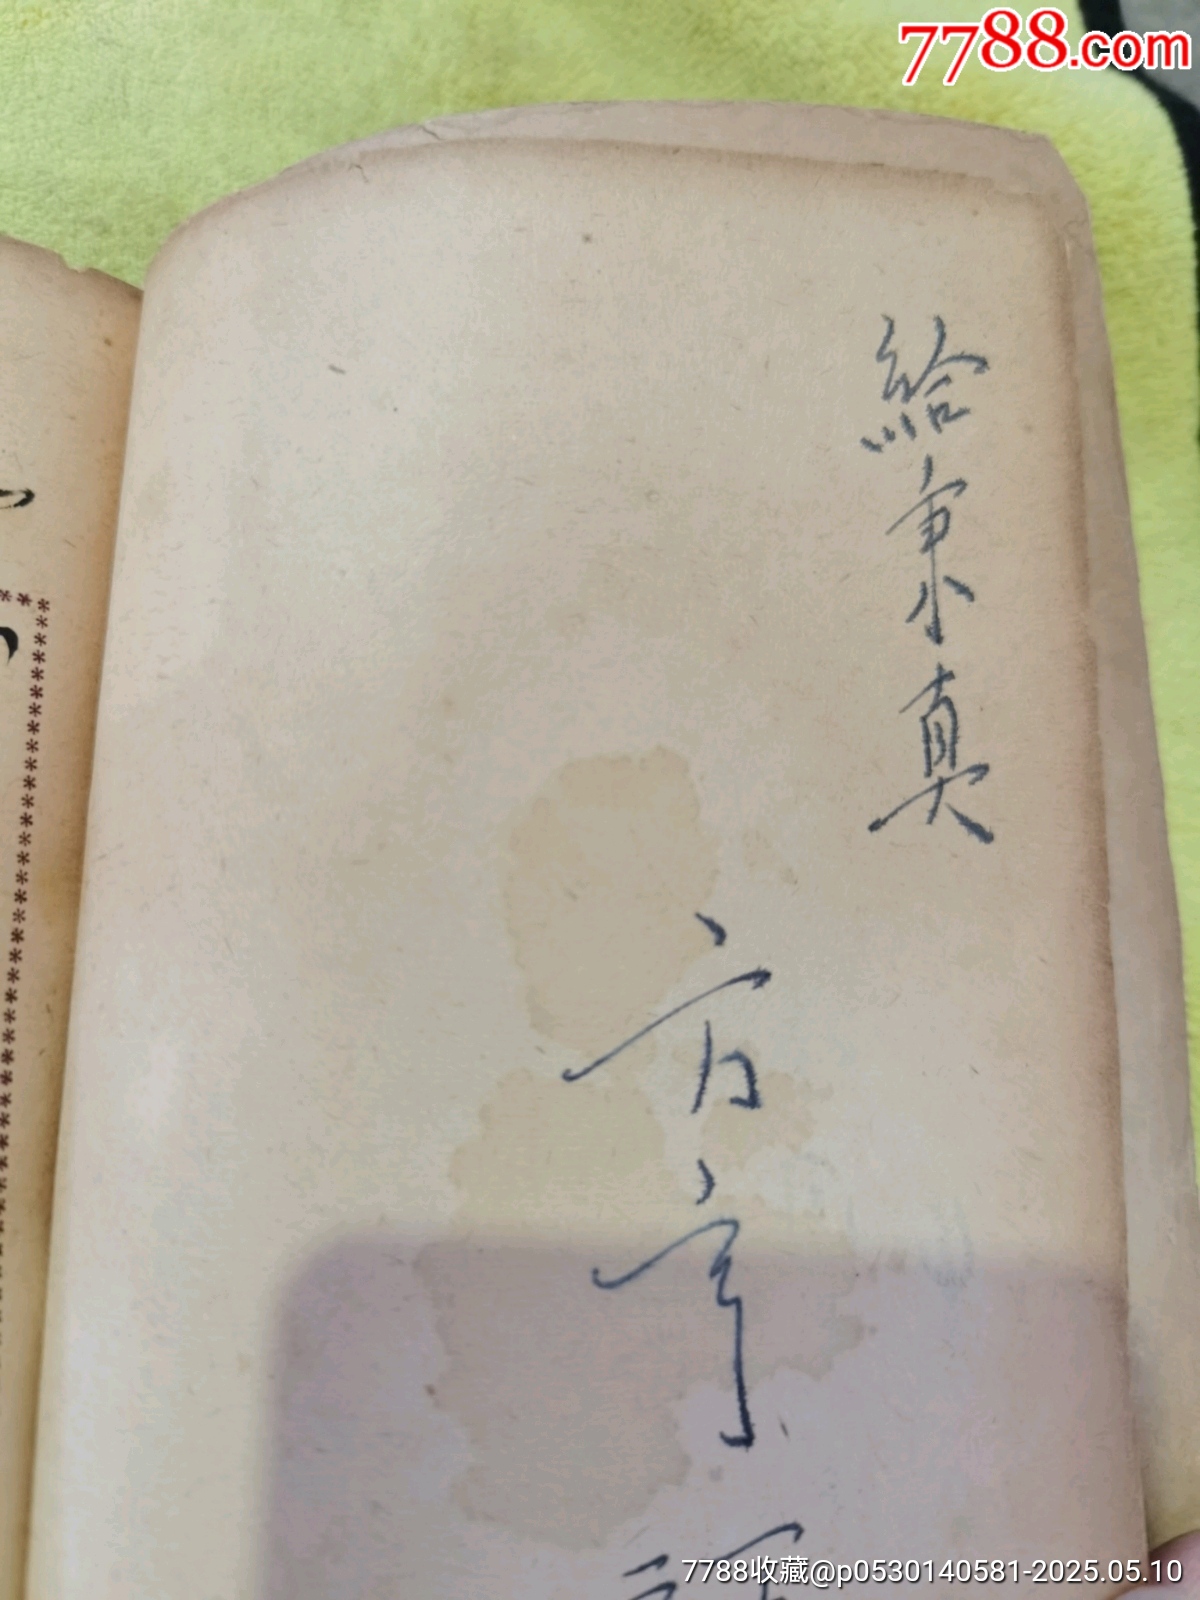 7788.com
給秉真
方亨
7788收藏@p0530140581-2025.05.10